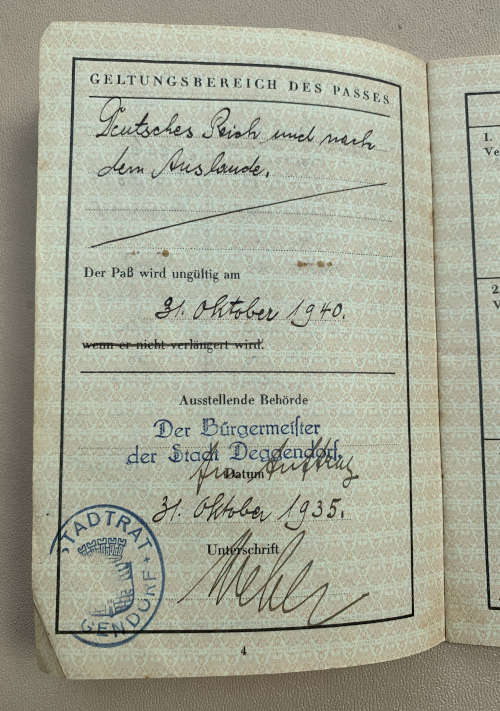 GELTUNGSBEREICH DES PASSES
Deutsches Reich und nach
dem Auslande.
Der Paß wird ungültig am
31. Oktober 1940.
wenn er nicht verlängert wird.
Ausstellende Behörde
Der Bürgermeister
der Stadt Deggendorf.
Datum
31. Oktober 1935.
Unterschrift
STADTRAT
GENDORF
4
1.
Ve
2
V